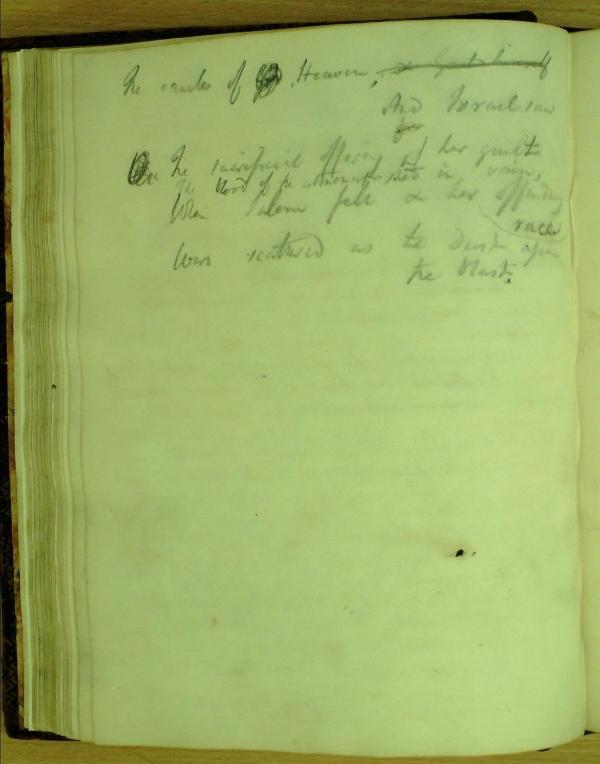 The oracles of Heaven, & God himself
And Israel saw
for
The sacrificial offering of her guilt
The blood of the atonement shed in vain,
When Salem fell & her offending
race
Were scattered as the dust upon
the blast.